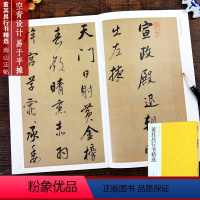 空背设计 易于平摊
董其昌行书精选 南山法帖
宣政殿退朝
出左掖
天门日射黄金榜
春殿晴曛赤羽
宫草霏霏承委
董其昌行书精选
粉象优品